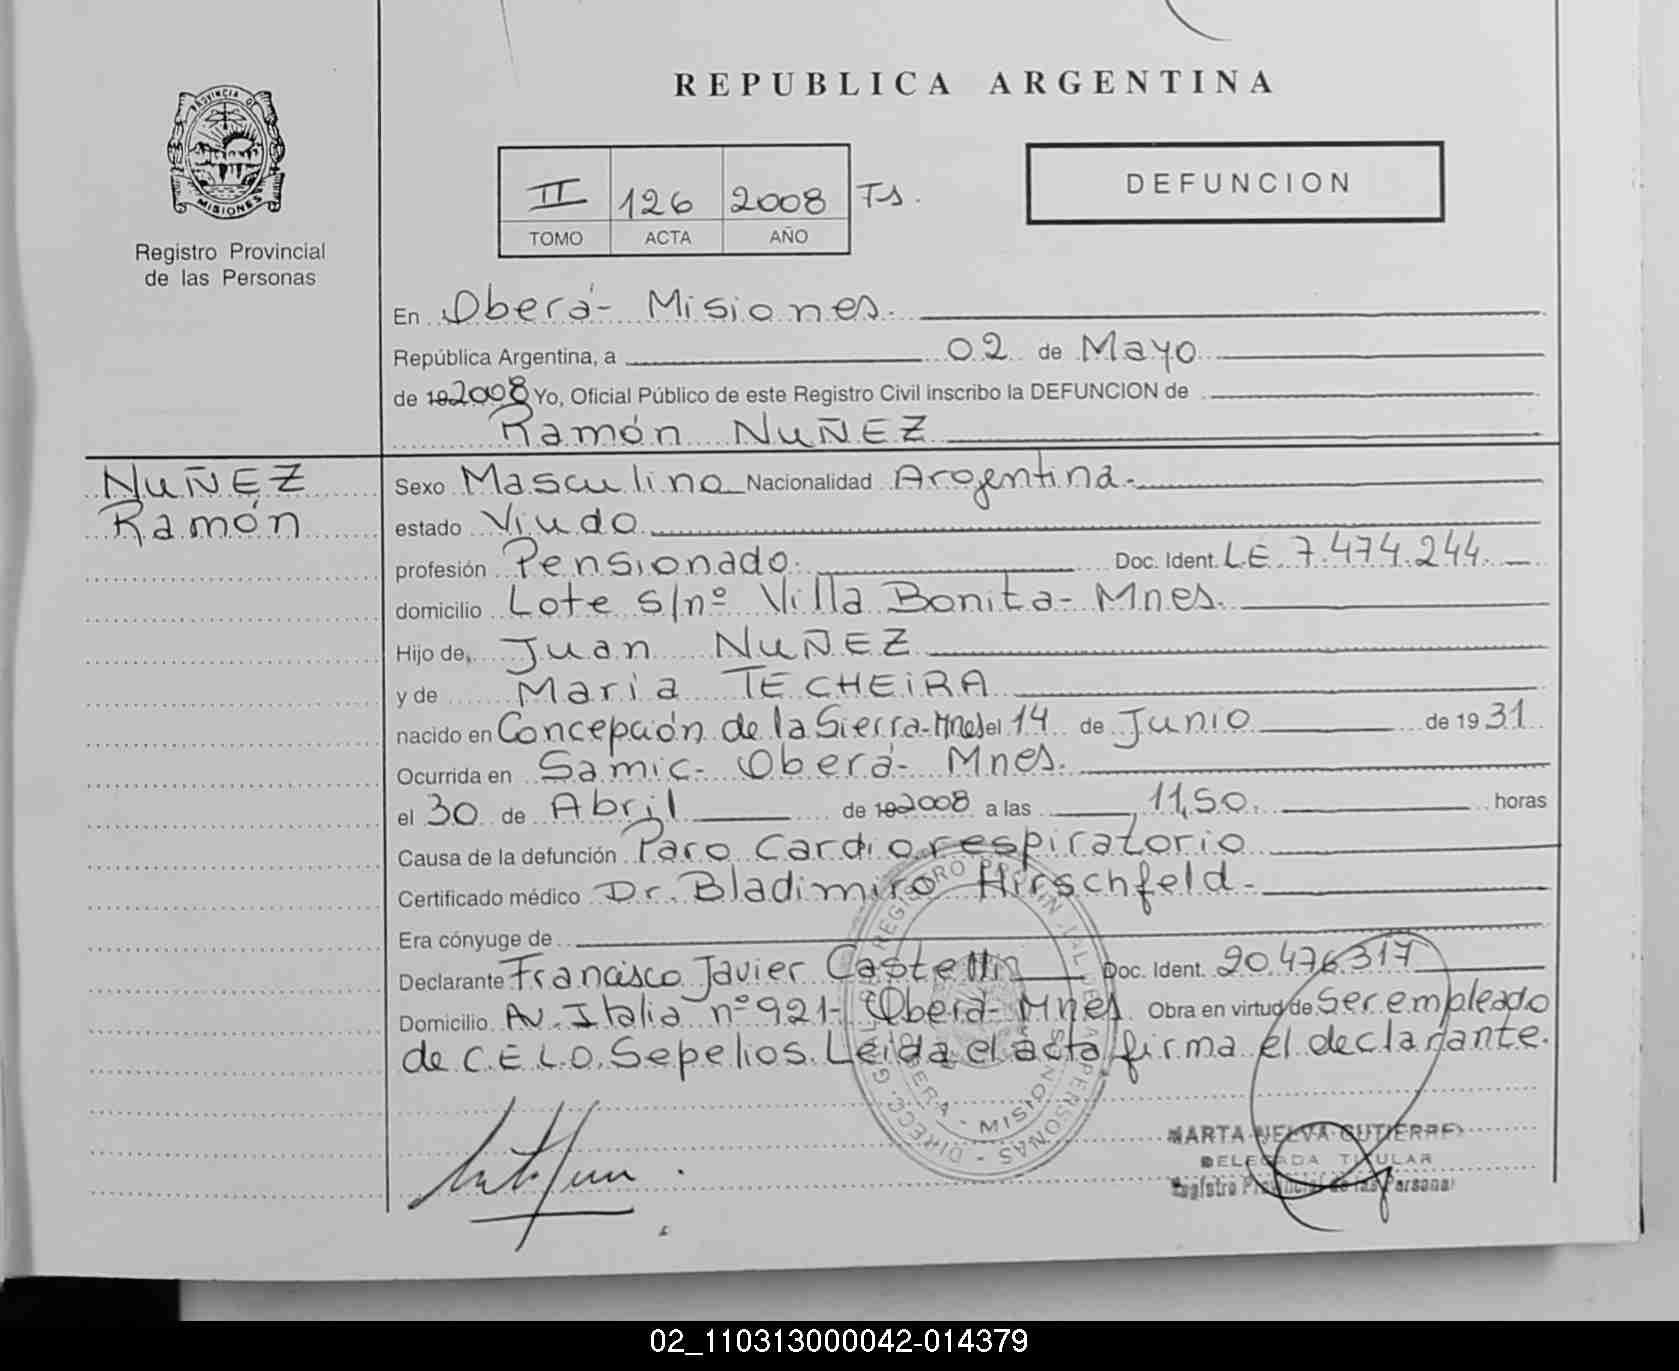 REPUBLICA ARGENTINA
PROVINCIA D MISIONES
Registro Provincial
de las Personas
II 126 2008 Ts.
TOMO ACTA AÑO
DEFUNCION
En Oberá- Misiones.
República Argentina, a 02 de Mayo
de 192008 Yo, Oficial Público de este Registro Civil inscribo la DEFUNCION de
Ramón NUÑEZ
NUÑEZ
Ramón
Sexo Masculino Nacionalidad Argentina.
estado Viudo
profesión Pensionado. Doc. Ident. L.E. 7.474.244.
domicilio Lote s/nº Villa Bonita- Mnes.
Hijo de, Juan NUÑEZ
y de Maria TECHEIRA
nacido en Concepción de la Sierra-Mnes el 14 de Junio de 1931
Ocurrida en Samic- Oberá- Mnes.
el 30 de Abril de 192008 a las 11,50. horas
Causa de la defunción Paro Cardiorespiratorio
Certificado médico Dr. Bladimiro Hirschfeld-
Era cónyuge de
Declarante Francisco Javier Castelli Doc. Ident. 20.476.317
Domicilio Av. Italia nº 921- Oberá- Mnes. Obra en virtud de Ser empleado
de C.E.L.O. Sepelios. Leida el acta firma el declarante.
OBERA - MISIONES
MARTA NELVA GUTIERREZ
DELEGADA TITULAR
Registro Provincial de las Personas
02_110313000042-014379